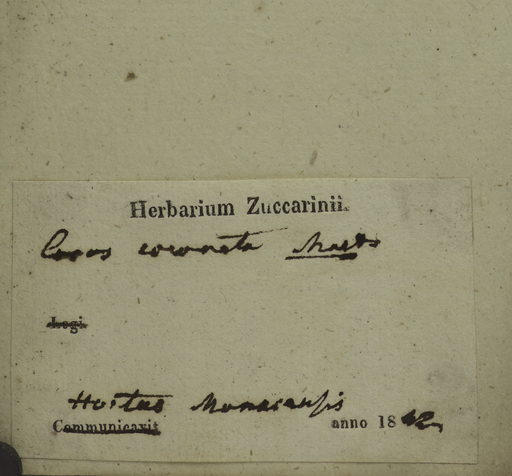 Herbarium Zuccarinii.
Cocos coronata Mart
Legi
Hortus Monacensis
Communicavit anno 1842